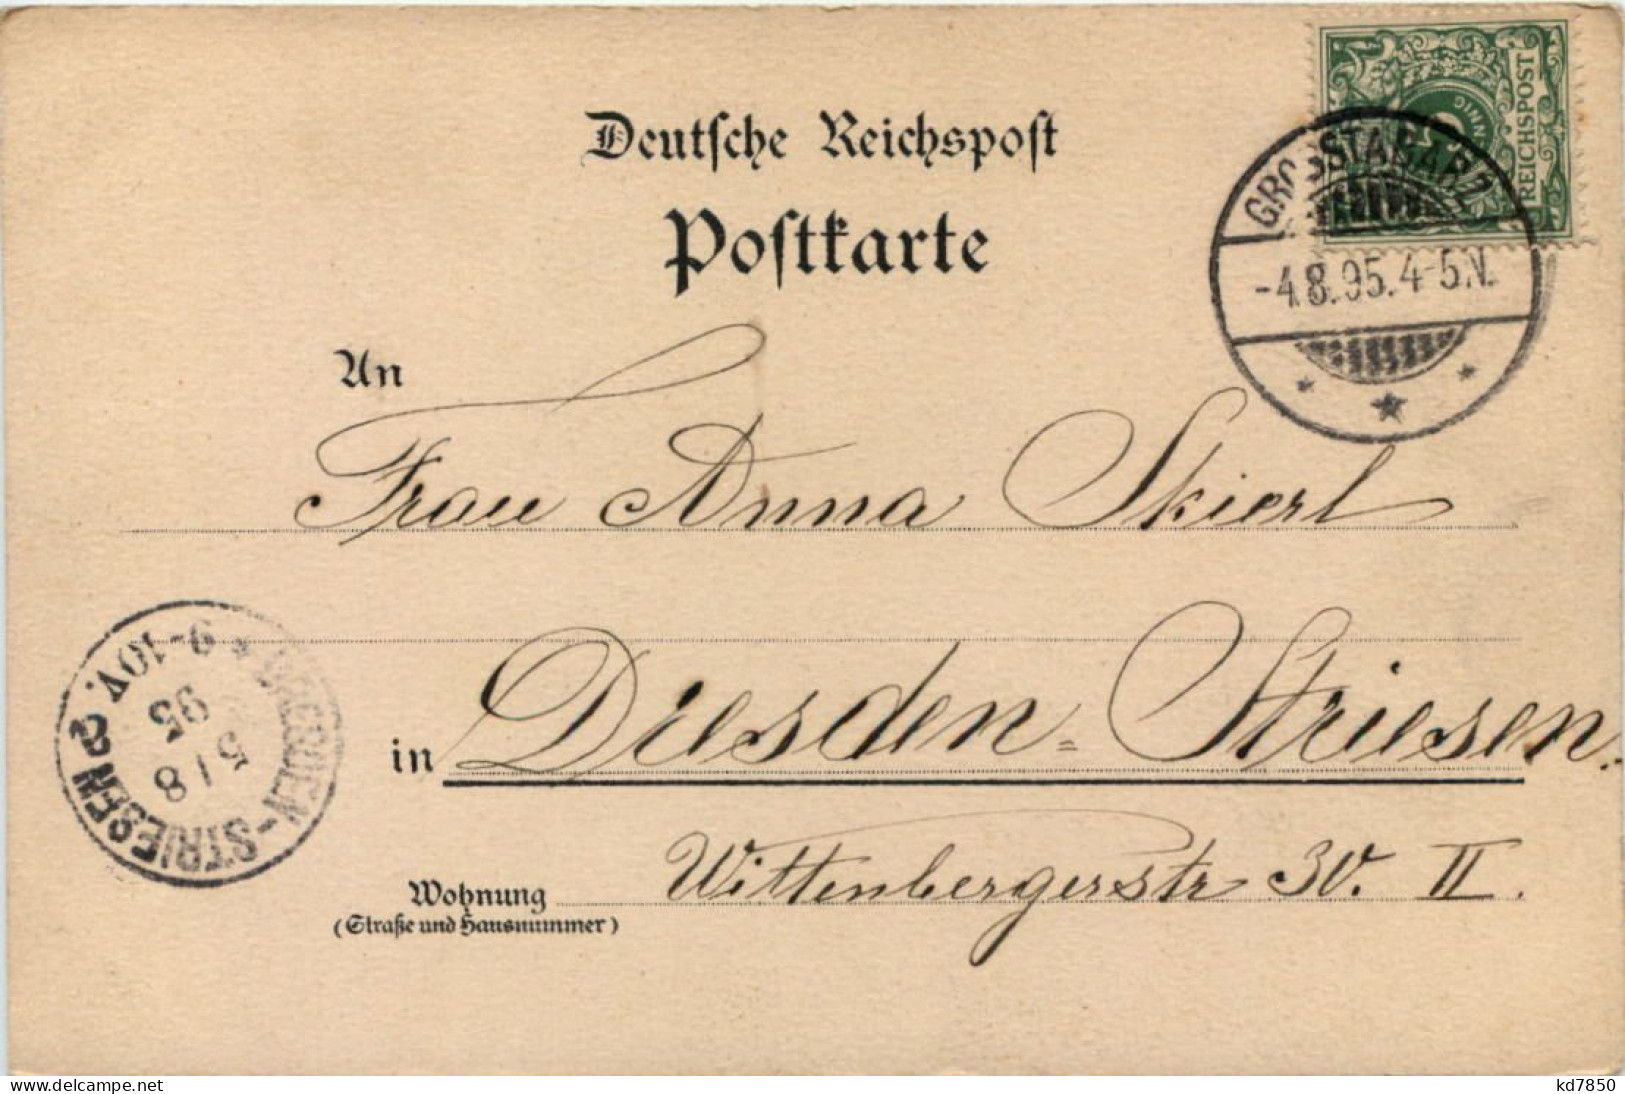 Deutsche Reichspost
Postkarte
REICHSPOST
GROSSTABARZ
-4.8.95.4-5N.
An
Frau Anna Skierl
in Dresden-Striesen.
Wittenbergerstr 30. II.
Wohnung
(Straße und Hausnummer)
DRESDEN-STRIESEN
5 | 8
95
9-10V.
www.delcampe.net
kd7850